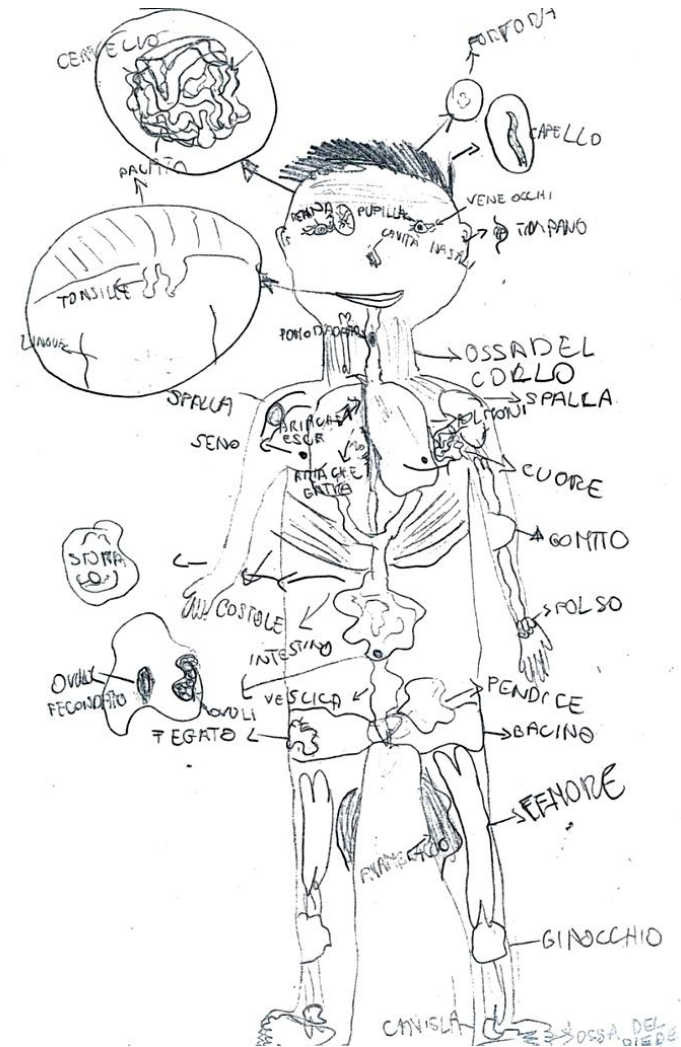 CERVELLO
FORFORA
CAPELLO
PALATO
VENE OCCHI
PUPILLA
CAVITÀ NASALI
TIMPANO
TONSILLE
LINGUA
POMO D'ADAMO
OSSA DEL
COLLO
SPALLA
SPALLA
SENO
ARIA CHE
ESCE
POLMONI
ARIA CHE
ENTRA
CUORE
GOMITO
COSTOLE
POLSO
INTESTINO
OVULO
FECONDATO
OVULI
VESCICA
PENDICE
FEGATO
BACINO
FEMORE
GINOCCHIO
CAVIGLIA
OSSA DEL
PIEDE